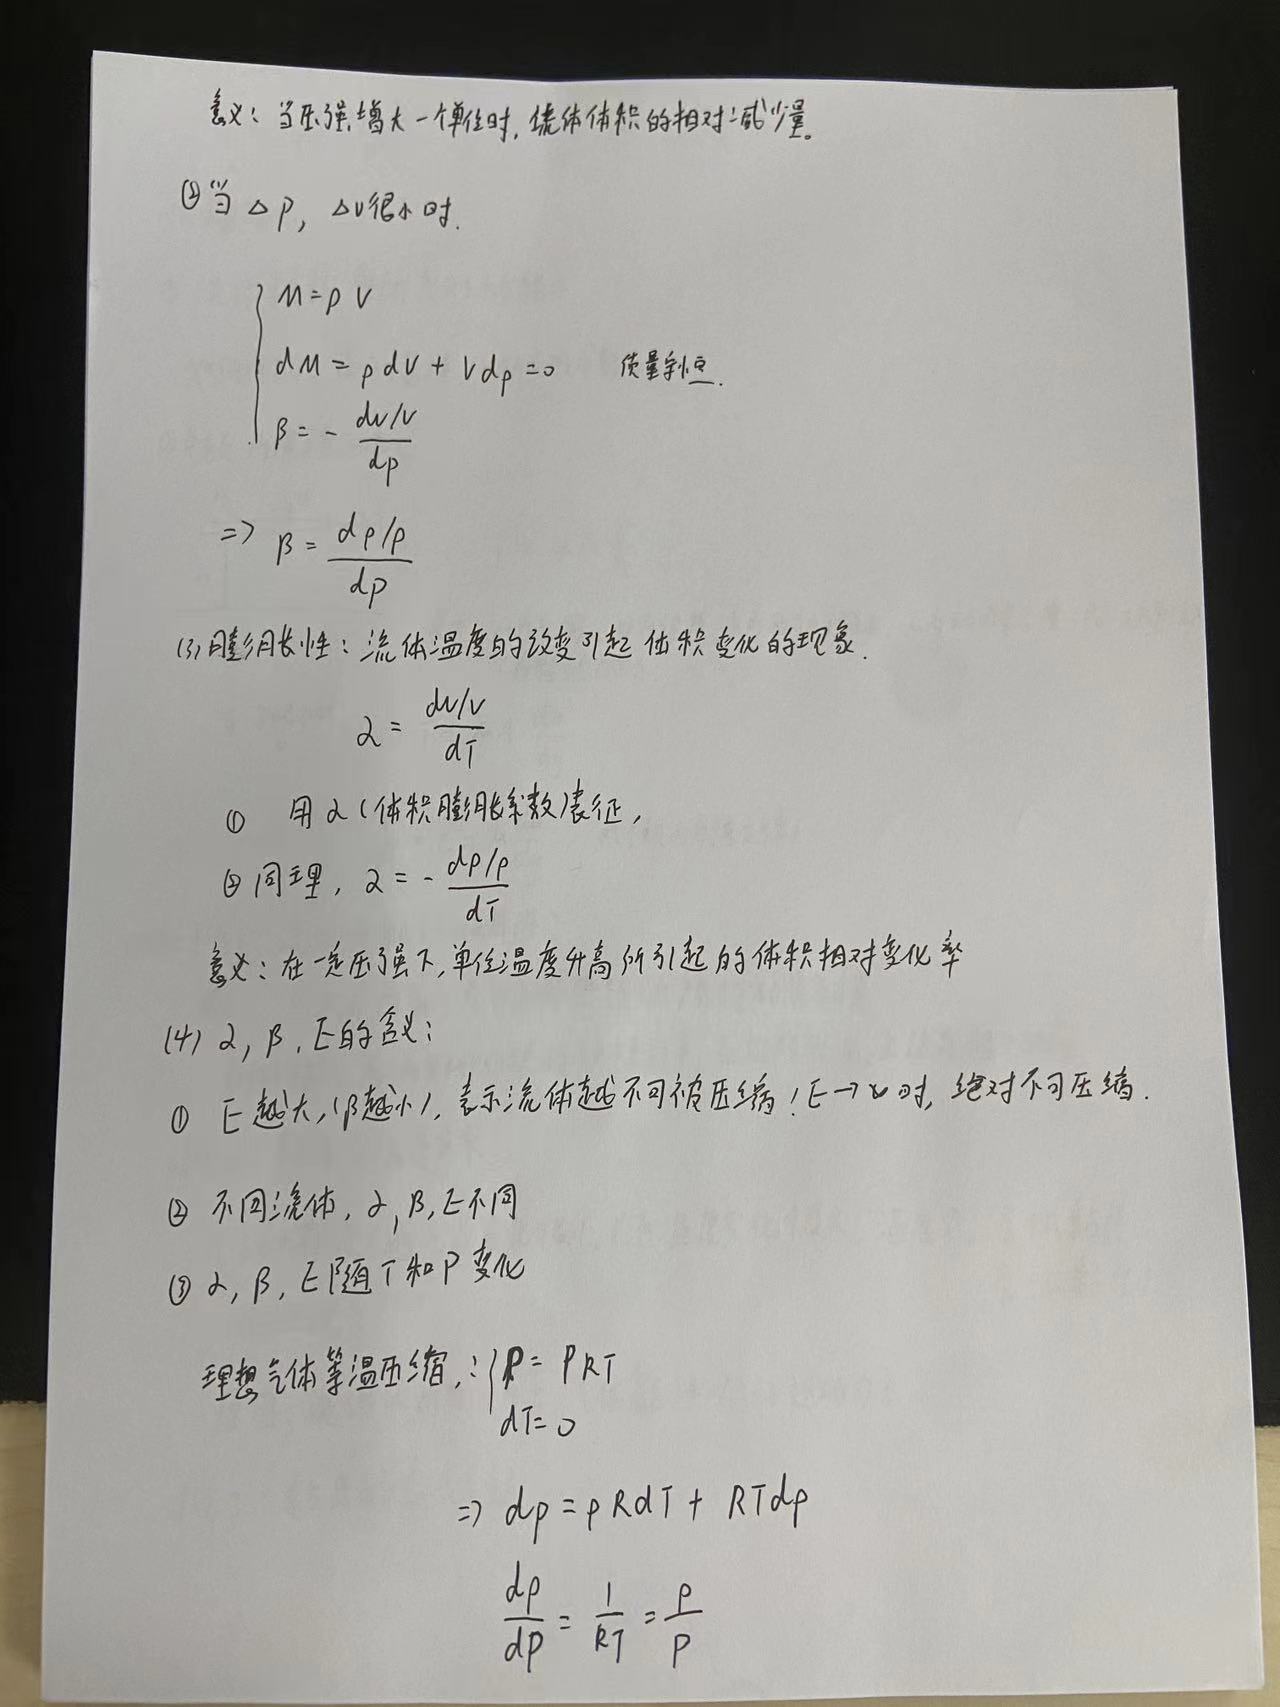 意义：当压强增大一个单位时，流体体积的相对减少量。
② 当 Δp，ΔV很小时.
M=ρV
dM=ρdV+Vdρ=0 质量守恒.
β=-(dV/V)/dp
=> β=(dρ/ρ)/dp
(3)膨胀性：流体温度的改变引起体积变化的现象.
α=(dV/V)/dT
① 用α(体积膨胀系数)表征，
② 同理，α=-(dρ/ρ)/dT
意义：在一定压强下，单位温度升高所引起的体积相对变化率
(4) α，β，E的含义：
① E越大，(β越小)，表示流体越不可被压缩！E→∞时，绝对不可压缩.
② 不同流体，α，β，E不同
③ α，β，E随T和P变化
理想气体等温压缩，：p=ρRT
dT=0
=> dp=ρRdT+RTdρ
dρ/dp=1/RT=ρ/p